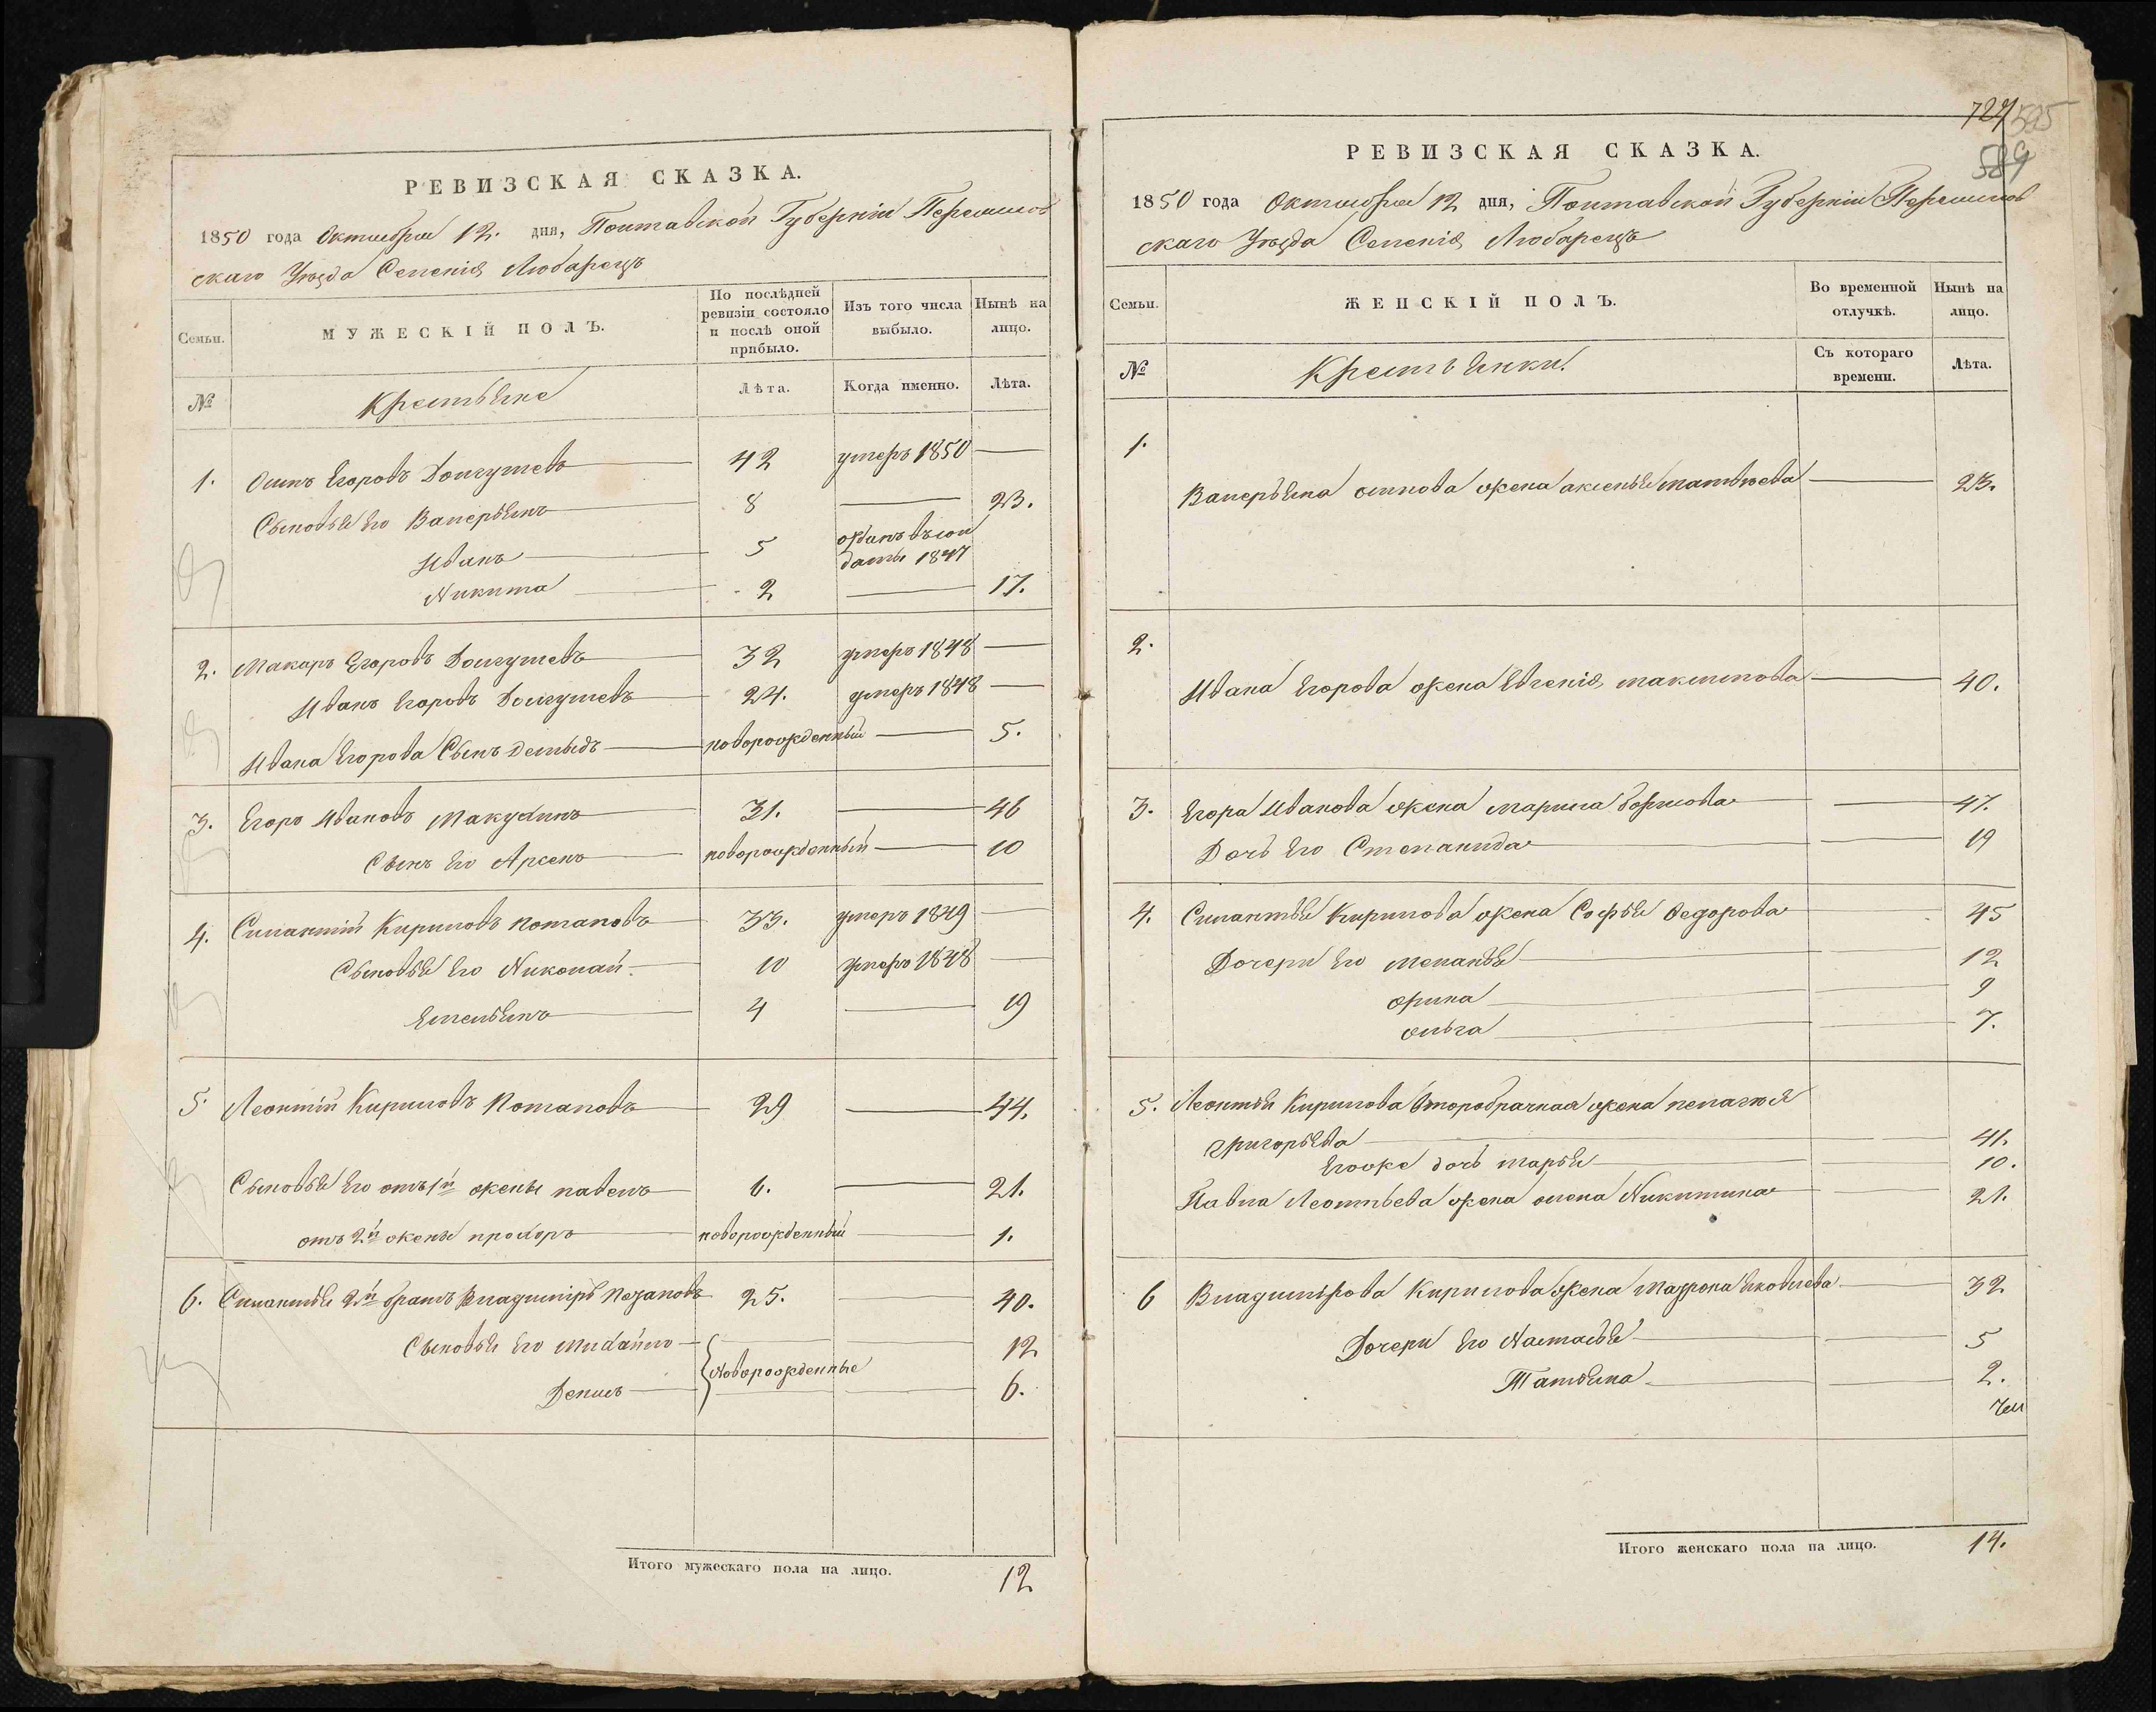 РЕВИЗСКАЯ СКАЗКА.
1850 года Октября 12. дня, Полтавской Губерніи Переяслов
скаго Уѣзда Селенія Любарецъ
Семьи.
МУЖЕСКІЙ ПОЛЪ.
По послѣдней ревизіи состояло и послѣ оной прибыло.
Изъ того числа выбыло.
Нынѣ на лицо.
№
Крестьяне
Лѣта.
Когда именно.
Лѣта.
1. Егоровъ Долгушевъ 42 умеръ 1850
Сыновья Его Валерьянъ 8 23.
Иванъ 5 отданъ въ сол
даты 1847
Никита 2 17.
2. Макаръ Егоровъ Долгушевъ 32 умеръ 1848
Иванъ Егоровъ Долгушевъ 24. умеръ 1848
Ивана Егорова Сынъ Демидъ новорожденный 5.
3. Егоръ Ивановъ 31. 46
Сынъ Его Арсенъ новорожденный 10
4. Силантій Кириловъ Потаповъ 33. умеръ 1849
Сыновья Его Николай. 10 умеръ 1848
Емельянъ 4 19
5. Леонтій Кириловъ Потаповъ 29 44.
Сыновья Его отъ 1й жены павелъ 6. 21.
отъ 2й жены прохоръ новорожденный 1.
6. Силантья 2й братъ Владиміръ 25. 40.
Сыновья Его Михайло 12
Новорожденные
Денисъ 6.
Итого мужескаго пола на лицо. 12
724
595
589
РЕВИЗСКАЯ СКАЗКА.
1850 года Октября 12 дня, Полтавской Губерніи Переяслов
скаго Уѣзда Селенія Любарецъ
Семьи.
ЖЕНСКІЙ ПОЛЪ.
Во временной отлучкѣ.
Нынѣ на лицо.
№
Крестьянки.
Съ котораго времени.
Лѣта.
1.
Валерьяна жена аксенья матвѣева 23.
2.
Ивана Егорова жена Евгенія максимова 40.
3. Егора Иванова жена марина 47.
Дочь Его Степанида 19
4. Силантья Кирилова жена Софья Федорова 45
Дочери Его меланья 12
орина 9
ольга 7.
5. Леонтья Кирилова второбрачная жена пелагея
григорьева 41.
Егоже дочь марья 10.
Павла Леонтьева жена олена Никитина 21.
6 Владимірова Кирилова жена Яковлева 32
Дочери Его Настасья 5
Татьяна 2.
Итого женскаго пола на лицо. 14.